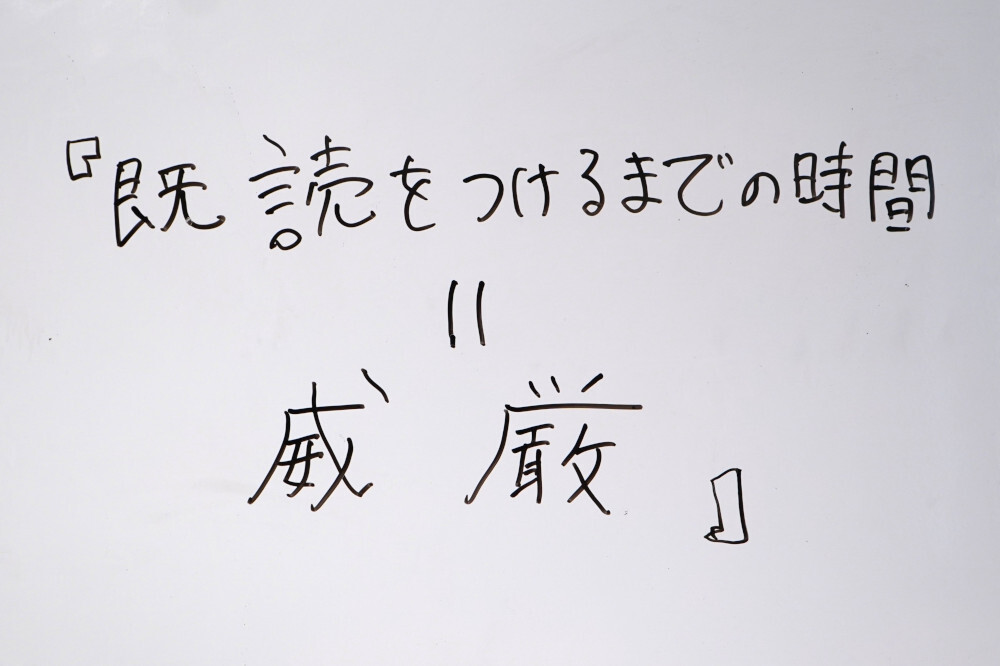 『既読をつけるまでの時間
||
威厳』